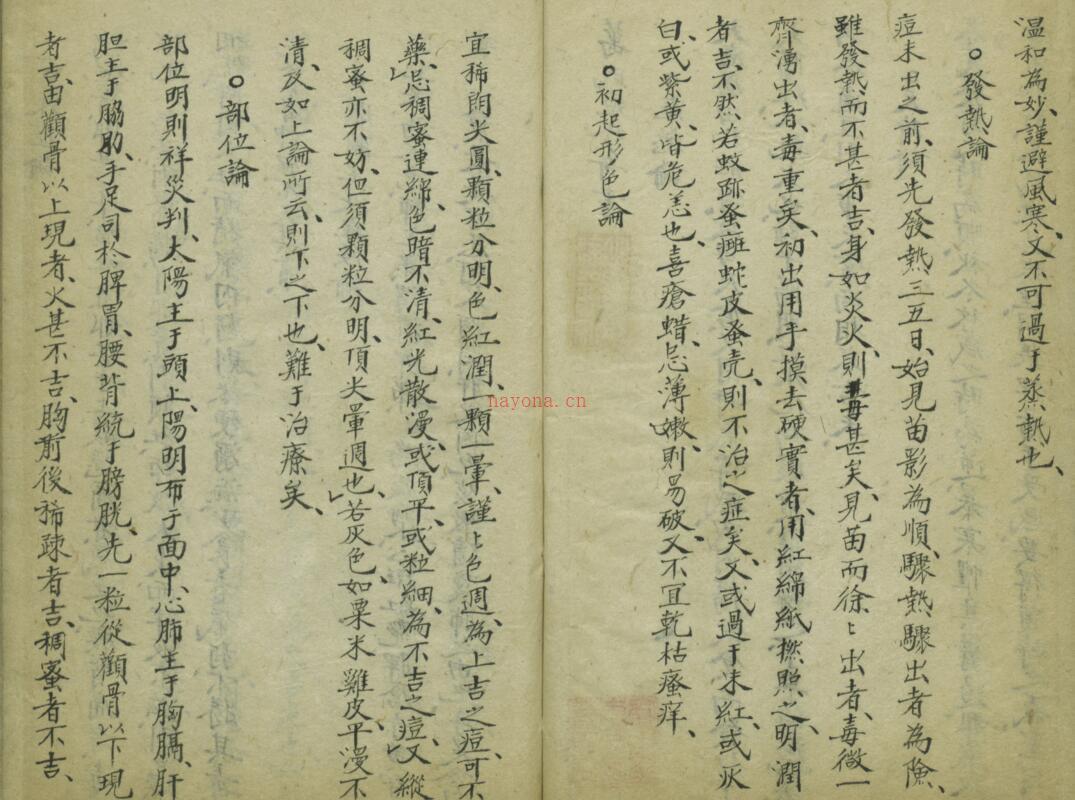 温和為妙、謹避風寒、又不可過于蒸熱也、
○發熱論
痘未出之前、須先發熱三五日、始見苗影為順、驟熱驟出者為險、
雖發熱而不甚者吉、身如炎火、則毒甚矣、見苗而徐〻出者、毒微、一
齊湧出者、毒重矣、初出用手摸去硬實者、用紅綿紙撚照之、明潤
者吉、不然、若蚊跡蚤斑蛇皮蚤壳、則不治之症矣、又或過于朱紅、或灰
白、或紫黃、皆危恙也、喜瘡蜡、忌薄嫩、則易破、又不宜乾枯瘙痒、
○初起形色論
宜稀踈尖圓、顆粒分明、色紅潤、一顆一暈、謹〻色週、為上吉之痘、可不
藥、忌稠蜜連綿、色暗不清、紅光散漫、或頂平、或粒細、為不吉之痘、又縱
稠蜜亦不妨、但須顆粒分明、頂尖暈週也、若灰色、如粟米雞皮、平漫不
清、及如上論所云、則下之下也、難于治療矣、
○部位論
部位明則祥災判、太陽主于頭上、陽明布于面中、心肺主于胸膈、肝
胆主于脇肋、手足司於脾胃、腰背統于膀胱、先一粒從顴骨以下現
者吉、由顴骨以上現者、火甚不吉、胸前後稀踈者吉、稠蜜者不吉、
nayona.cn